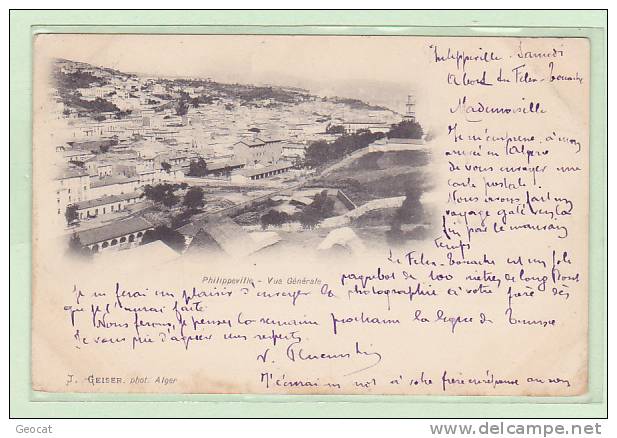 Philippeville - Samedi
A bord du Félix-Touache
Mademoiselle
Je m'empresse, à mon
arrivée en Algérie
de vous envoyer une
carte postale!
Nous avons fait un
voyage gâté vers la
fin par le mauvais
temps
Le Félix-Touache est un joli
paquebot de 100 mètres de long
Philippeville - Vue Générale
Je me ferai un plaisir d'envoyer la photographie à votre frère dès
que je l'aurai faite
Nous ferons, je pense, la semaine prochaine la ligne de Tunisie
Je vous prie d'agréer mes respects.
V.
J. GEISER, phot. Alger
M'écrire un mot à votre frère
Geocat
www.delcampe.net